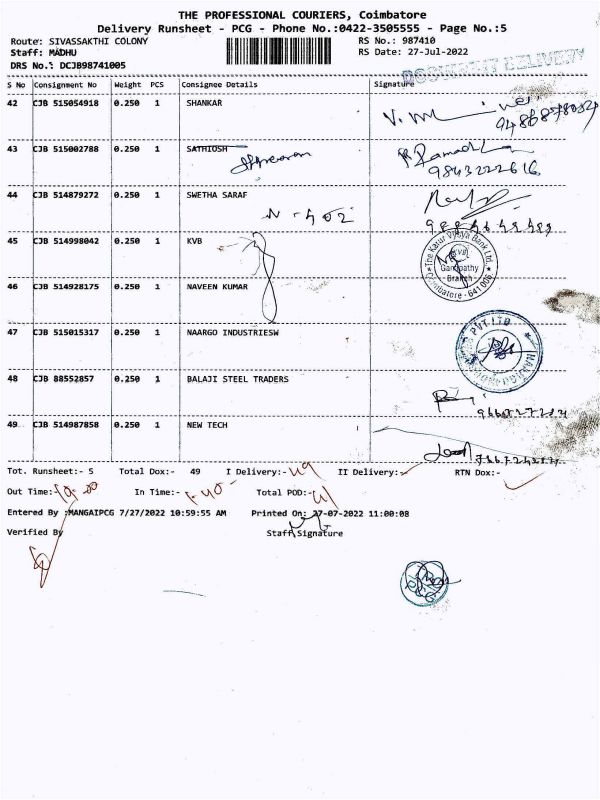 THE PROFESSIONAL COURIERS, Coimbatore
Delivery Runsheet - PCG - Phone No.:0422-3505555 - Page No.:5
Route: SIVASSAKTHI COLONY RS No.: 987410
Staff: MADHU RS Date: 27-Jul-2022
DRS No.: DCJB98741005
DOCUMENT DELIVERY
S No Consignment No Weight PCS Consignee Details Signature
42 CJB 515054918 0.250 1 SHANKAR
43 CJB 515002788 0.250 1 SATHIOSH
9843222616
44 CJB 514879272 0.250 1 SWETHA SARAF
N - 402
45 CJB 514998042 0.250 1 KVB
The Karur Vysya Bank Ltd. KVB Ganapathy Branch Coimbatore - 641 006
46 CJB 514928175 0.250 1 NAVEEN KUMAR
47 CJB 515015317 0.250 1 NAARGO INDUSTRIESW
PVT LTD
48 CJB 88552857 0.250 1 BALAJI STEEL TRADERS
49 CJB 514987858 0.250 1 NEW TECH
Tot. Runsheet:- 5 Total Dox:- 49 I Delivery:- 49 II Delivery:- RTN Dox:-
Out Time:- In Time:- Total POD:-
Entered By :MANGAIPCG 7/27/2022 10:59:55 AM Printed On: 27-07-2022 11:00:08
Verified By Staff Signature